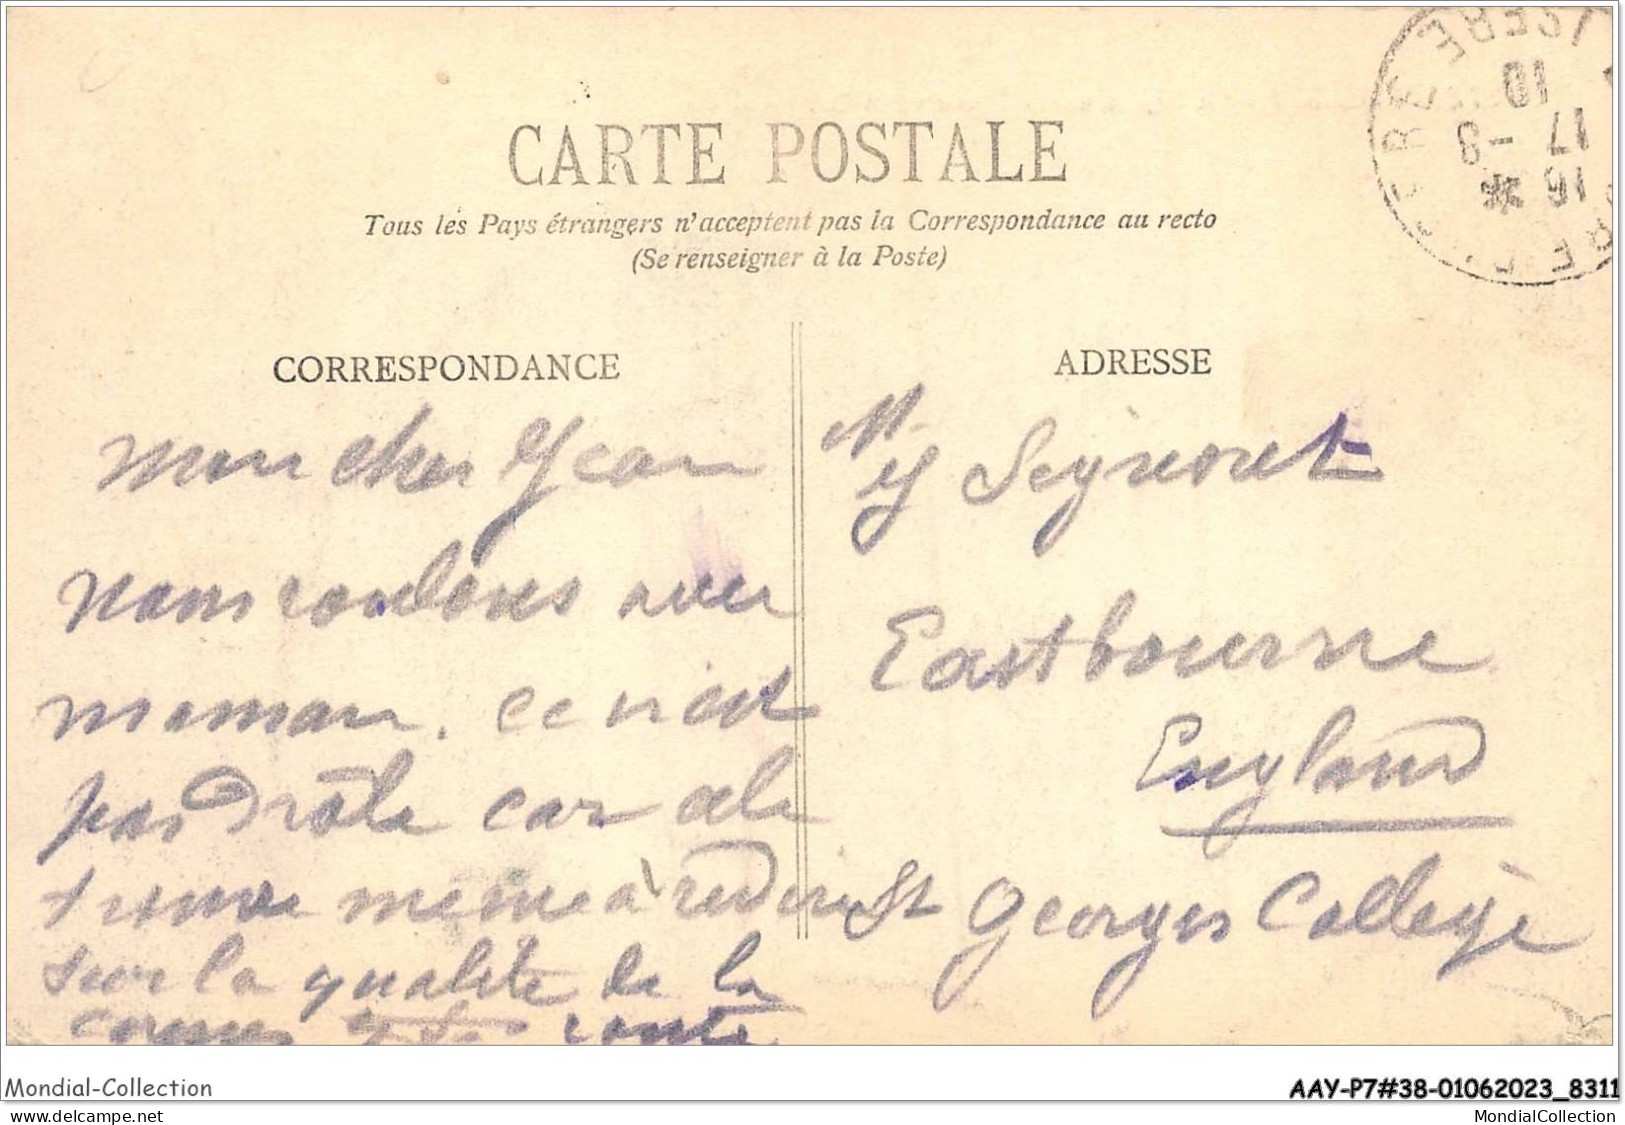 CARTE POSTALE
Tous les Pays étrangers n'acceptent pas la Correspondance au recto
(Se renseigner à la Poste)
ISÈRE
10
17 - 8
16 *
CORRESPONDANCE
mon cher Jean
nous roulons avec
maman. ce n'est
pas drôle car elle
trouve même à redire
sur la qualité de la
route
ADRESSE
Mr
J Seignoret
Eastbourne
England
St Georges College
Mondial-Collection
AAY-P7#38-01062023_8311
delcampe.net
MondialCollection